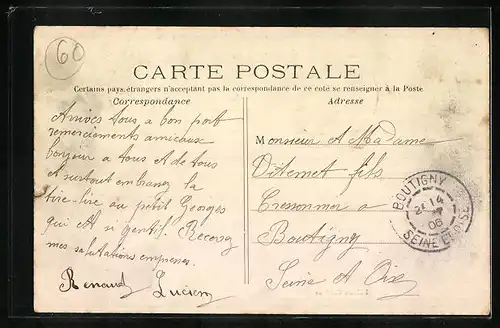 60
CARTE POSTALE
Certains pays étrangers n'acceptant pas la correspondance de ce coté se renseigner à la Poste
Correspondance
Adresse
Arrivés tous a bon port
remerciements amicaux
bonjour a tous et de tous
et surtout la
tire-lire au petit Georges
qui est si gentil.
mes salutations
Renaud Lucien
Monsieur et Madame
fils
Cressonnier a
Boutigny
Seine et Oise
BOUTIGNY
14
06
SEINE ET OISE